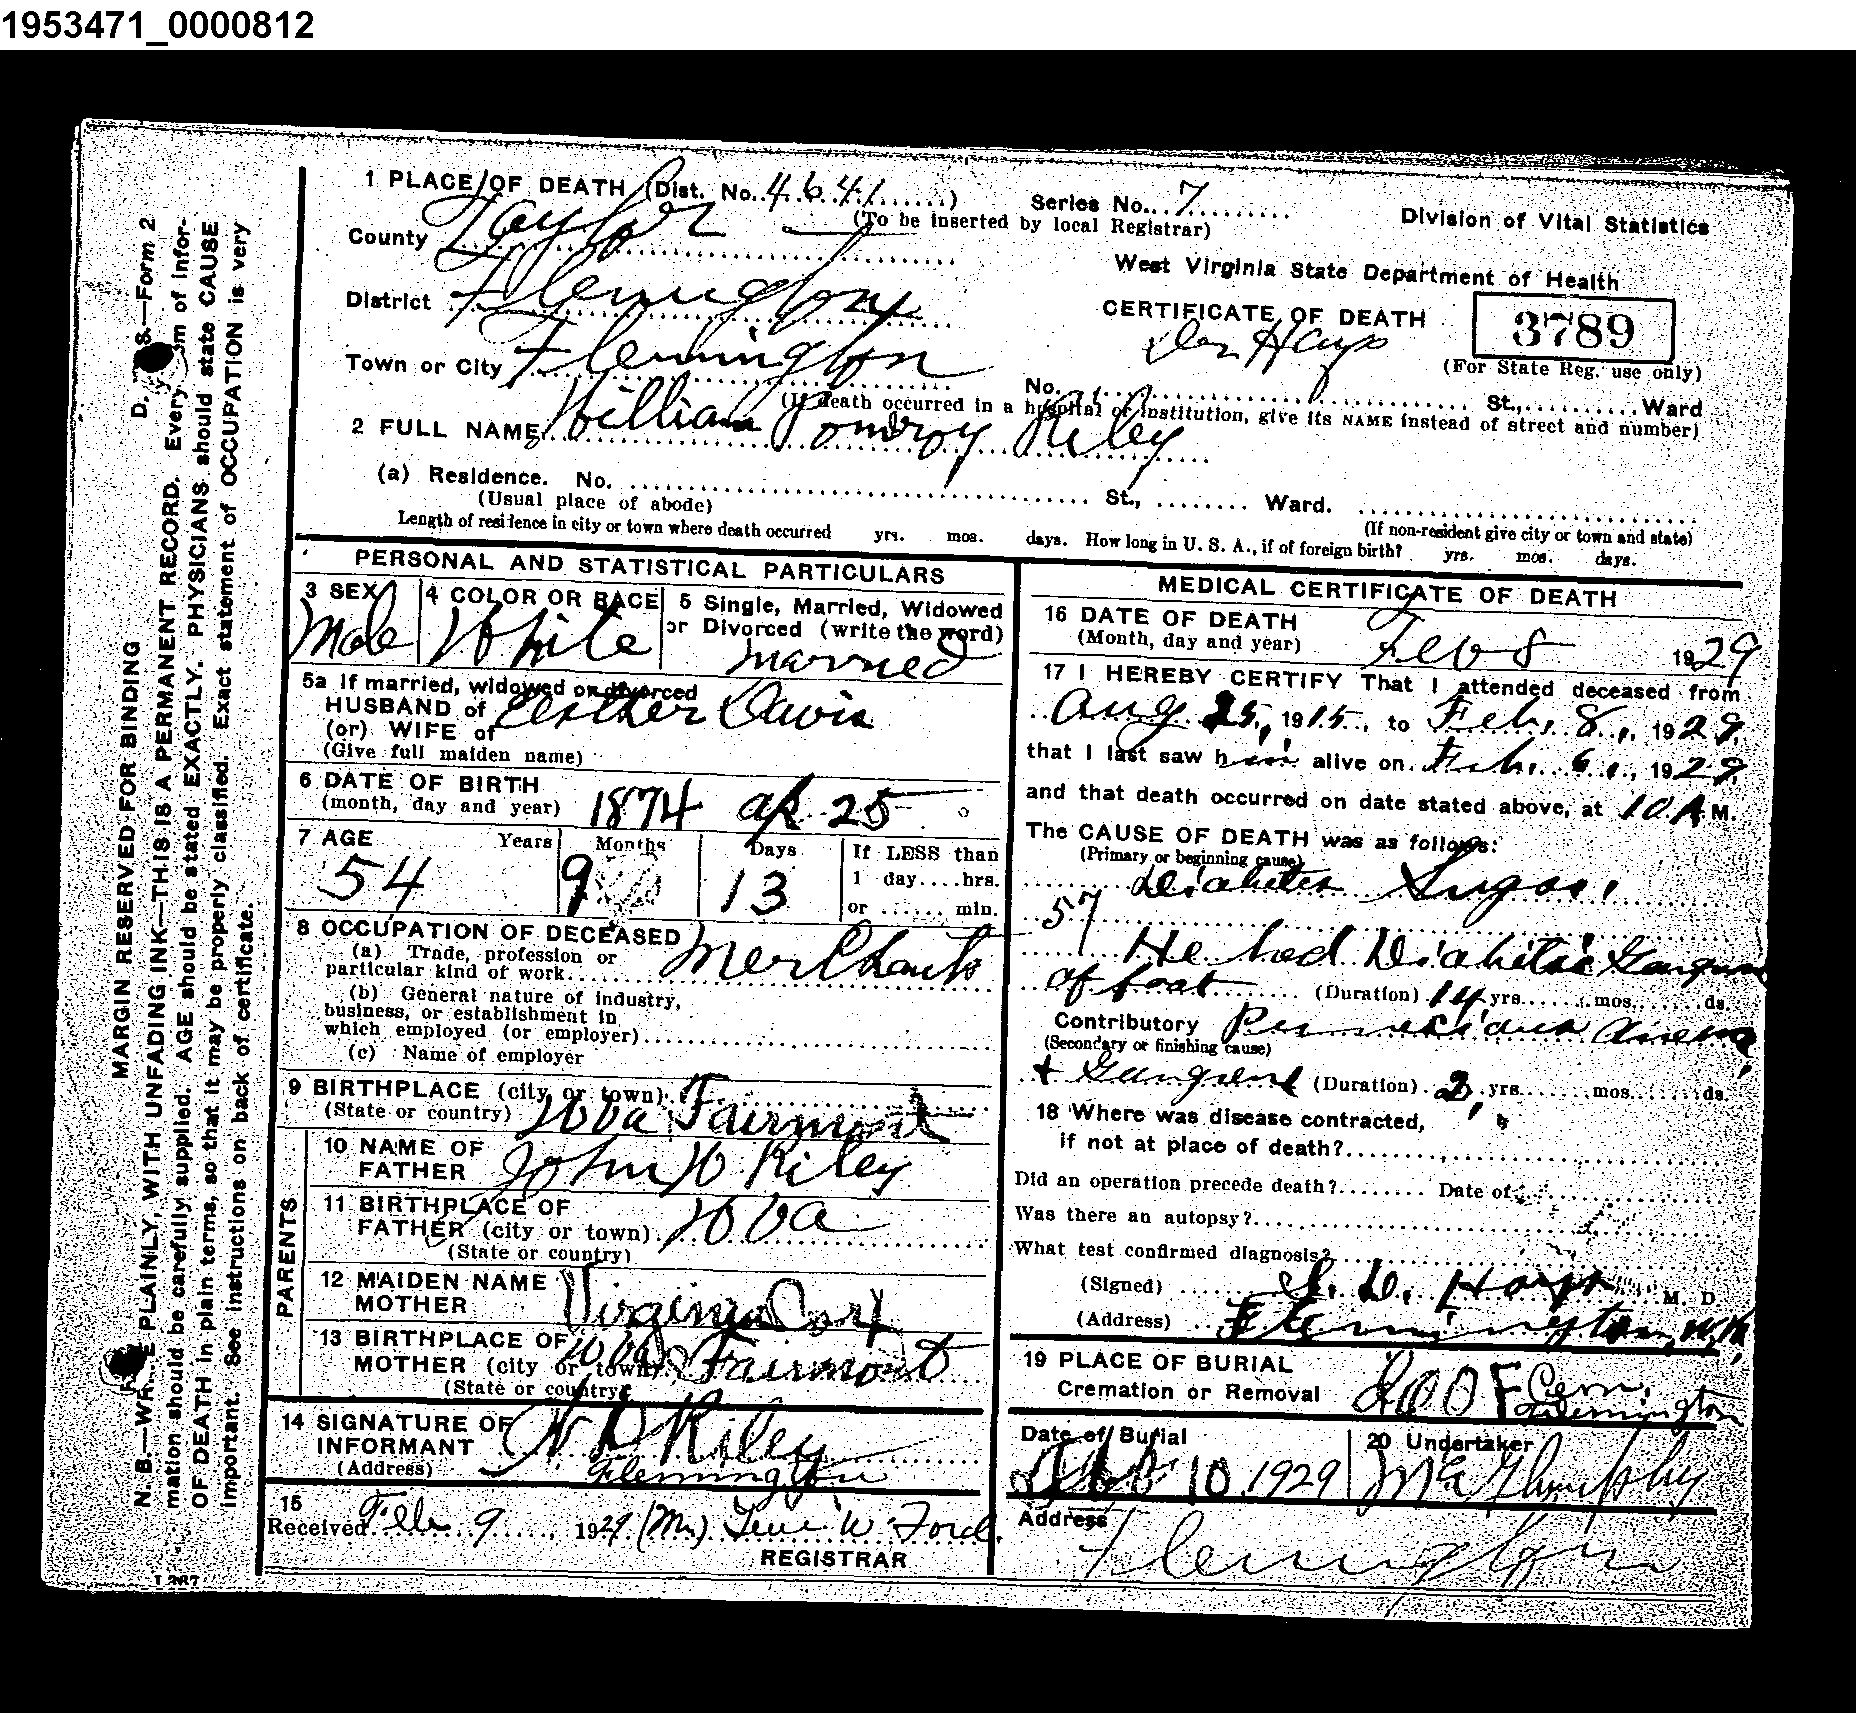 1953471_0000812
1 PLACE OF DEATH (Dist. No. 4641)
Series No. 7
(To be inserted by local Registrar)
Division of Vital Statistics
County Taylor
West Virginia State Department of Health
District Flemington
CERTIFICATE OF DEATH
3789
(For State Reg. use only)
Town or City Flemington
No. St., Ward
(If death occurred in a hospital or institution, give its NAME instead of street and number)
2 FULL NAME William Pomroy Riley
(a) Residence. No. St., Ward.
(Usual place of abode)
(If non-resident give city or town and state)
Length of residence in city or town where death occurred yrs. mos. days. How long in U. S. A., if of foreign birth? yrs. mos. days.
PERSONAL AND STATISTICAL PARTICULARS
3 SEX
Male
4 COLOR OR RACE
White
5 Single, Married, Widowed
or Divorced (write the word)
Married
5a If married, widowed or divorced
HUSBAND of Esther Davis
(or) WIFE of
(Give full maiden name)
6 DATE OF BIRTH
(month, day and year) 1874 Ap 25
7 AGE Years Months Days
54 9 13
If LESS than
1 day....hrs.
or ...... min.
8 OCCUPATION OF DECEASED
(a) Trade, profession or
particular kind of work Merchant
(b) General nature of industry,
business, or establishment in
which employed (or employer)
(c) Name of employer
9 BIRTHPLACE (city or town)
(State or country) W Va Fairmont
PARENTS
10 NAME OF
FATHER John W Riley
11 BIRTHPLACE OF
FATHER (city or town) W Va
(State or country)
12 MAIDEN NAME
MOTHER Virginia
13 BIRTHPLACE OF
MOTHER (city or town) W Va Fairmont
(State or country)
14 SIGNATURE OF
INFORMANT Riley
(Address) Flemington
15
Received Feb 9, 1929 (Mrs) W. Ford
REGISTRAR
MEDICAL CERTIFICATE OF DEATH
16 DATE OF DEATH
(Month, day and year) Feb 8 1929
17 I HEREBY CERTIFY That I attended deceased from
Aug 25, 1915, to Feb. 8, 1929,
that I last saw him alive on Feb. 6, 1929
and that death occurred on date stated above, at 10 A M.
The CAUSE OF DEATH was as follows:
(Primary or beginning cause)
Diabetes Sugar
57
He had Diabetic Gangrene
of foot (Duration) 14 yrs. mos. ds.
Contributory Pernicious Anemia
(Secondary or finishing cause)
+ Gangrene (Duration) 2 yrs. mos. ds.
18 Where was disease contracted,
if not at place of death?
Did an operation precede death? Date of
Was there an autopsy?
What test confirmed diagnosis?
(Signed) Hays M. D.
(Address) Flemington, W.Va.
19 PLACE OF BURIAL
Cremation or Removal IOOF Cem.
Flemington
Date of Burial
Feb 10 1929
20 Undertaker
Address
Flemington
MARGIN RESERVED FOR BINDING
N. B.—WRITE PLAINLY, WITH UNFADING INK—THIS IS A PERMANENT RECORD. Every item of infor-
mation should be carefully supplied. AGE should be stated EXACTLY. PHYSICIANS should state CAUSE
OF DEATH in plain terms, so that it may be properly classified. Exact statement of OCCUPATION is very
important. See instructions on back of certificate.